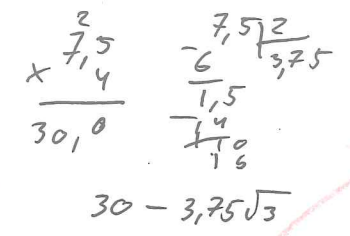 2
7,5
× 4
30,0
7,5 | 2
3,75
- 6
1,5
- 1 4
1 0
1 5
30 - 3,75√3